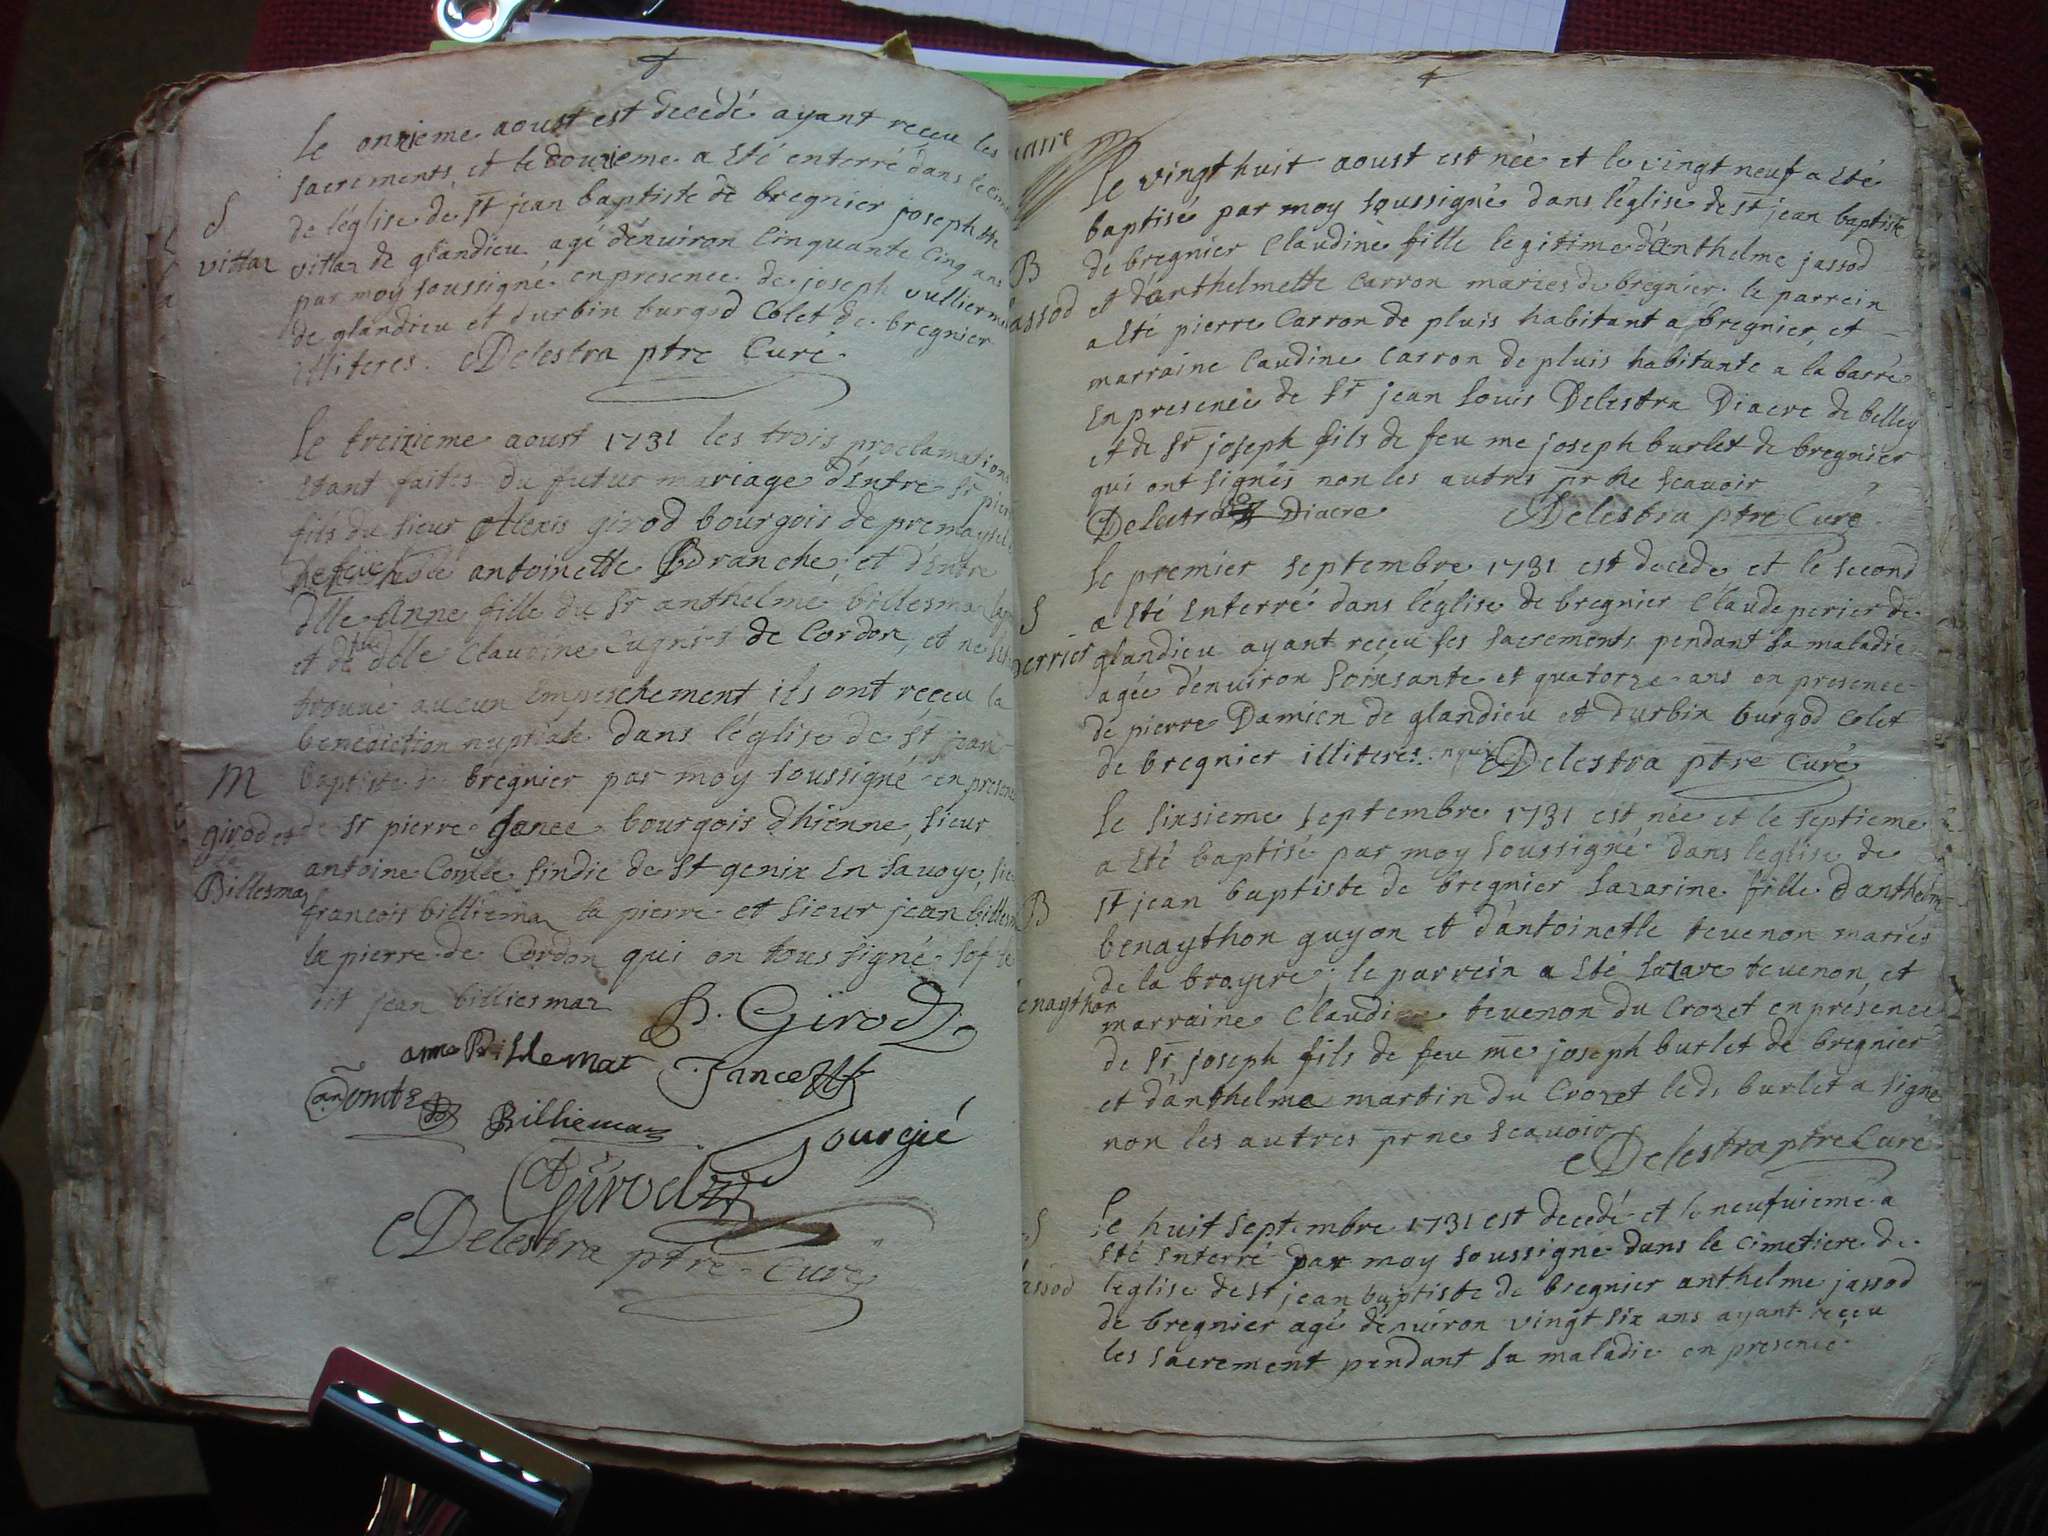 Le onzieme aoust est decedé ayant reçeu les
sacrements, et le douzieme a eté enterré dans le
de léglise de st jean baptiste de bregnier joseph
S
vittaz
vittaz de glandieu agé dénuiron Cinquante Cinq ans
par moy soussigné en presence de joseph vullierme
de glandieu et durbin burgod Colet de bregnier
illiteres. Delestra ptre Curé.
Le treizieme aoust 1731 les trois proclamations
etant faites du futur mariage dEntre Sr
fils du sieur Alexis girod bourgois de
antoinette Branche, et d'Entre
dlle Anne fille du Sr anthelme billesmaz
et de dlle Claudine Cugnet de Cordon, et ne
trouvé aucun Empeschement ils ont reçeu la
benediction nuptiale dans léglise de st jean
M
girod et
Billesmaz
baptiste de bregnier par moy soussigné en presence
de Sr pierre Jance bourgois dhienne, sieur
antoine Comte sindic de St genix En savoye,
francois billiemaz la pierre et sieur jean
la pierre de Cordon qui on tous signé
dit jean billiesmaz
P. Girod
anne Billemaz Jance
an Comte Billiemaz
A Girod
Delestra ptre Curé
Le vingt huit aoust est née et le vingt neuf a eté
baptisé par moy soussigné dans léglise de st jean baptiste
B
assod
de bregnier Claudine fille legitime dánthelme jassod
et dánthelmette Carron mariés de bregnier. le parrein
a eté pierre Carron de pluis habitant a bregnier, et
marraine Claudine Carron de pluis habitante a la barre
En presence de Sr jean Louis Delestra Diacre de belley
et de Sr joseph fils de feu me joseph burlet de bregnier
qui ont signés non les autres pr ne scavoir
Delestra Diacre Delestra ptre Curé
Le premier septembre 1731 est decede et le second
S
perrier
a eté Enterré dans léglise de bregnier Claude perier de
glandieu ayant reçeu les sacrements pendant sa maladie
agée dénuiron soinsante et quatorze ans en presence
de pierre Damien de glandieu et durbin burgod Colet
de bregnier illiteres enquis Delestra ptre Curé
Le sixsieme septembre 1731 est née et le septieme
a eté baptisé par moy soussigné dans leglise de
B
enaython
st jean baptiste de bregnier Lazarine fille danthelme
benaython guyon et dántoinette tevenon mariés
de la broyere; le parrein a eté Lazare tevenon, et
marraine Claudine tevenon du Crozet en presence
de Sr joseph fils de feu me joseph burlet de bregnier
et dánthelme martin du Crozet leds burlet a signé
non les autres pr ne scavoir Delestra ptre Curé
S
assod
Le huit septembre 1731 est decedé et le neufuieme a
eté Enterré par moy soussigné dans le cimetiere de
leglise de st jean baptiste de bregnier anthelme jassod
de bregnier agé dénuiron vingt six ans ayant reçeu
les sacrement pendant sa maladie en presence